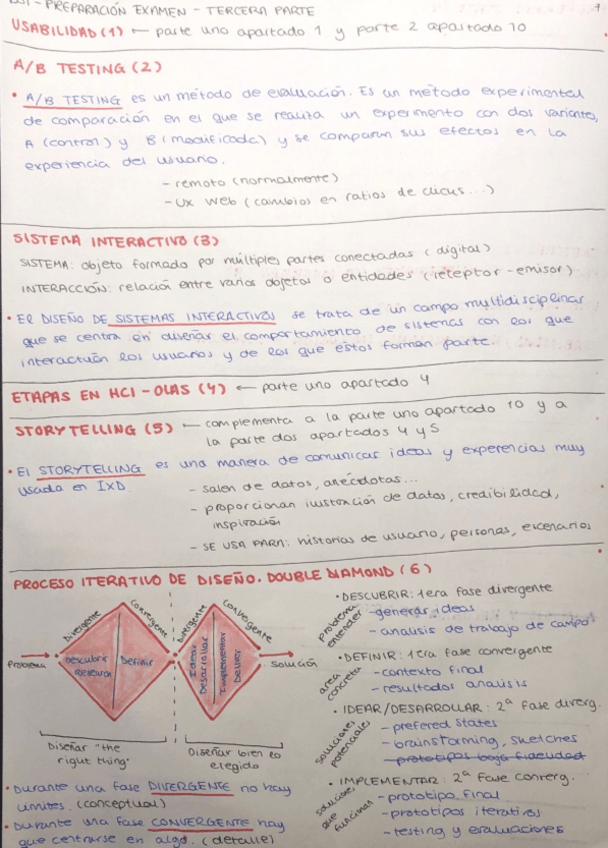 - PREPARACIÓN EXAMEN - TERCERA PARTE
1
USABILIDAD (1) ← parte uno apartado 1 y parte 2 apartado 10
A/B TESTING (2)
• A/B TESTING es un método de evaluación. Es un método experimental
de comparación en el que se realiza un experimento con dos variantes,
A (control) y B (modificada) y se comparan sus efectos en la
experiencia del usuario.
- remoto (normalmente)
- UX Web (cambios en ratios de clicks...)
SISTEMA INTERACTIVO (3)
SISTEMA: objeto formado por múltiples partes conectadas (digital)
INTERACCIÓN: relación entre varios objetos o entidades (receptor-emisor)
• El DISEÑO DE SISTEMAS INTERACTIVOS se trata de un campo multidisciplinar
que se centra en diseñar el comportamiento de sistemas con los que
interactúan los usuarios y de los que estos forman parte.
ETAPAS EN HCI - OLAS (4) ← parte uno apartado 4
STORYTELLING (5) ← complementa a la parte uno apartado 10 y a
la parte dos apartados 4 y 5
• El STORYTELLING es una manera de comunicar ideas y experencias muy
usada en IXD.
- salen de datos, anécdotas...
- proporcionan ilustración de datos, credibilidad,
inspiración
- SE USA PARA: historias de usuario, personas, escenarios
PROCESO ITERATIVO DE DISEÑO. DOUBLE DIAMOND (6)
Problema
Divergente
Convergente
Descubrir
Research
Definir
Divergente
Convergente
Idear
Desarrollar
Implementar
Deliver
Solución
Diseñar "the
right thing"
Diseñar bien lo
elegido
• Durante una fase DIVERGENTE no hay
límites. (conceptual)
• Durante una fase CONVERGENTE hay
que centrarse en algo. (detalle)
• DESCUBRIR: 1era fase divergente
Problema
entender
- generar ideas
- analisis de trabajo de campo
• DEFINIR: 1era fase convergente
area
concreta
- contexto final
- resultados analisis
• IDEAR/DESARROLLAR: 2ª fase diverg.
soluciones
potenciales
- prefered states
- brainstorming, sketches
- prototipos baja fidelidad
• IMPLEMENTAR: 2ª Fase converg.
soluciones
que
funcionan
- prototipo final
- prototipos iterativos
- testing y evaluaciones